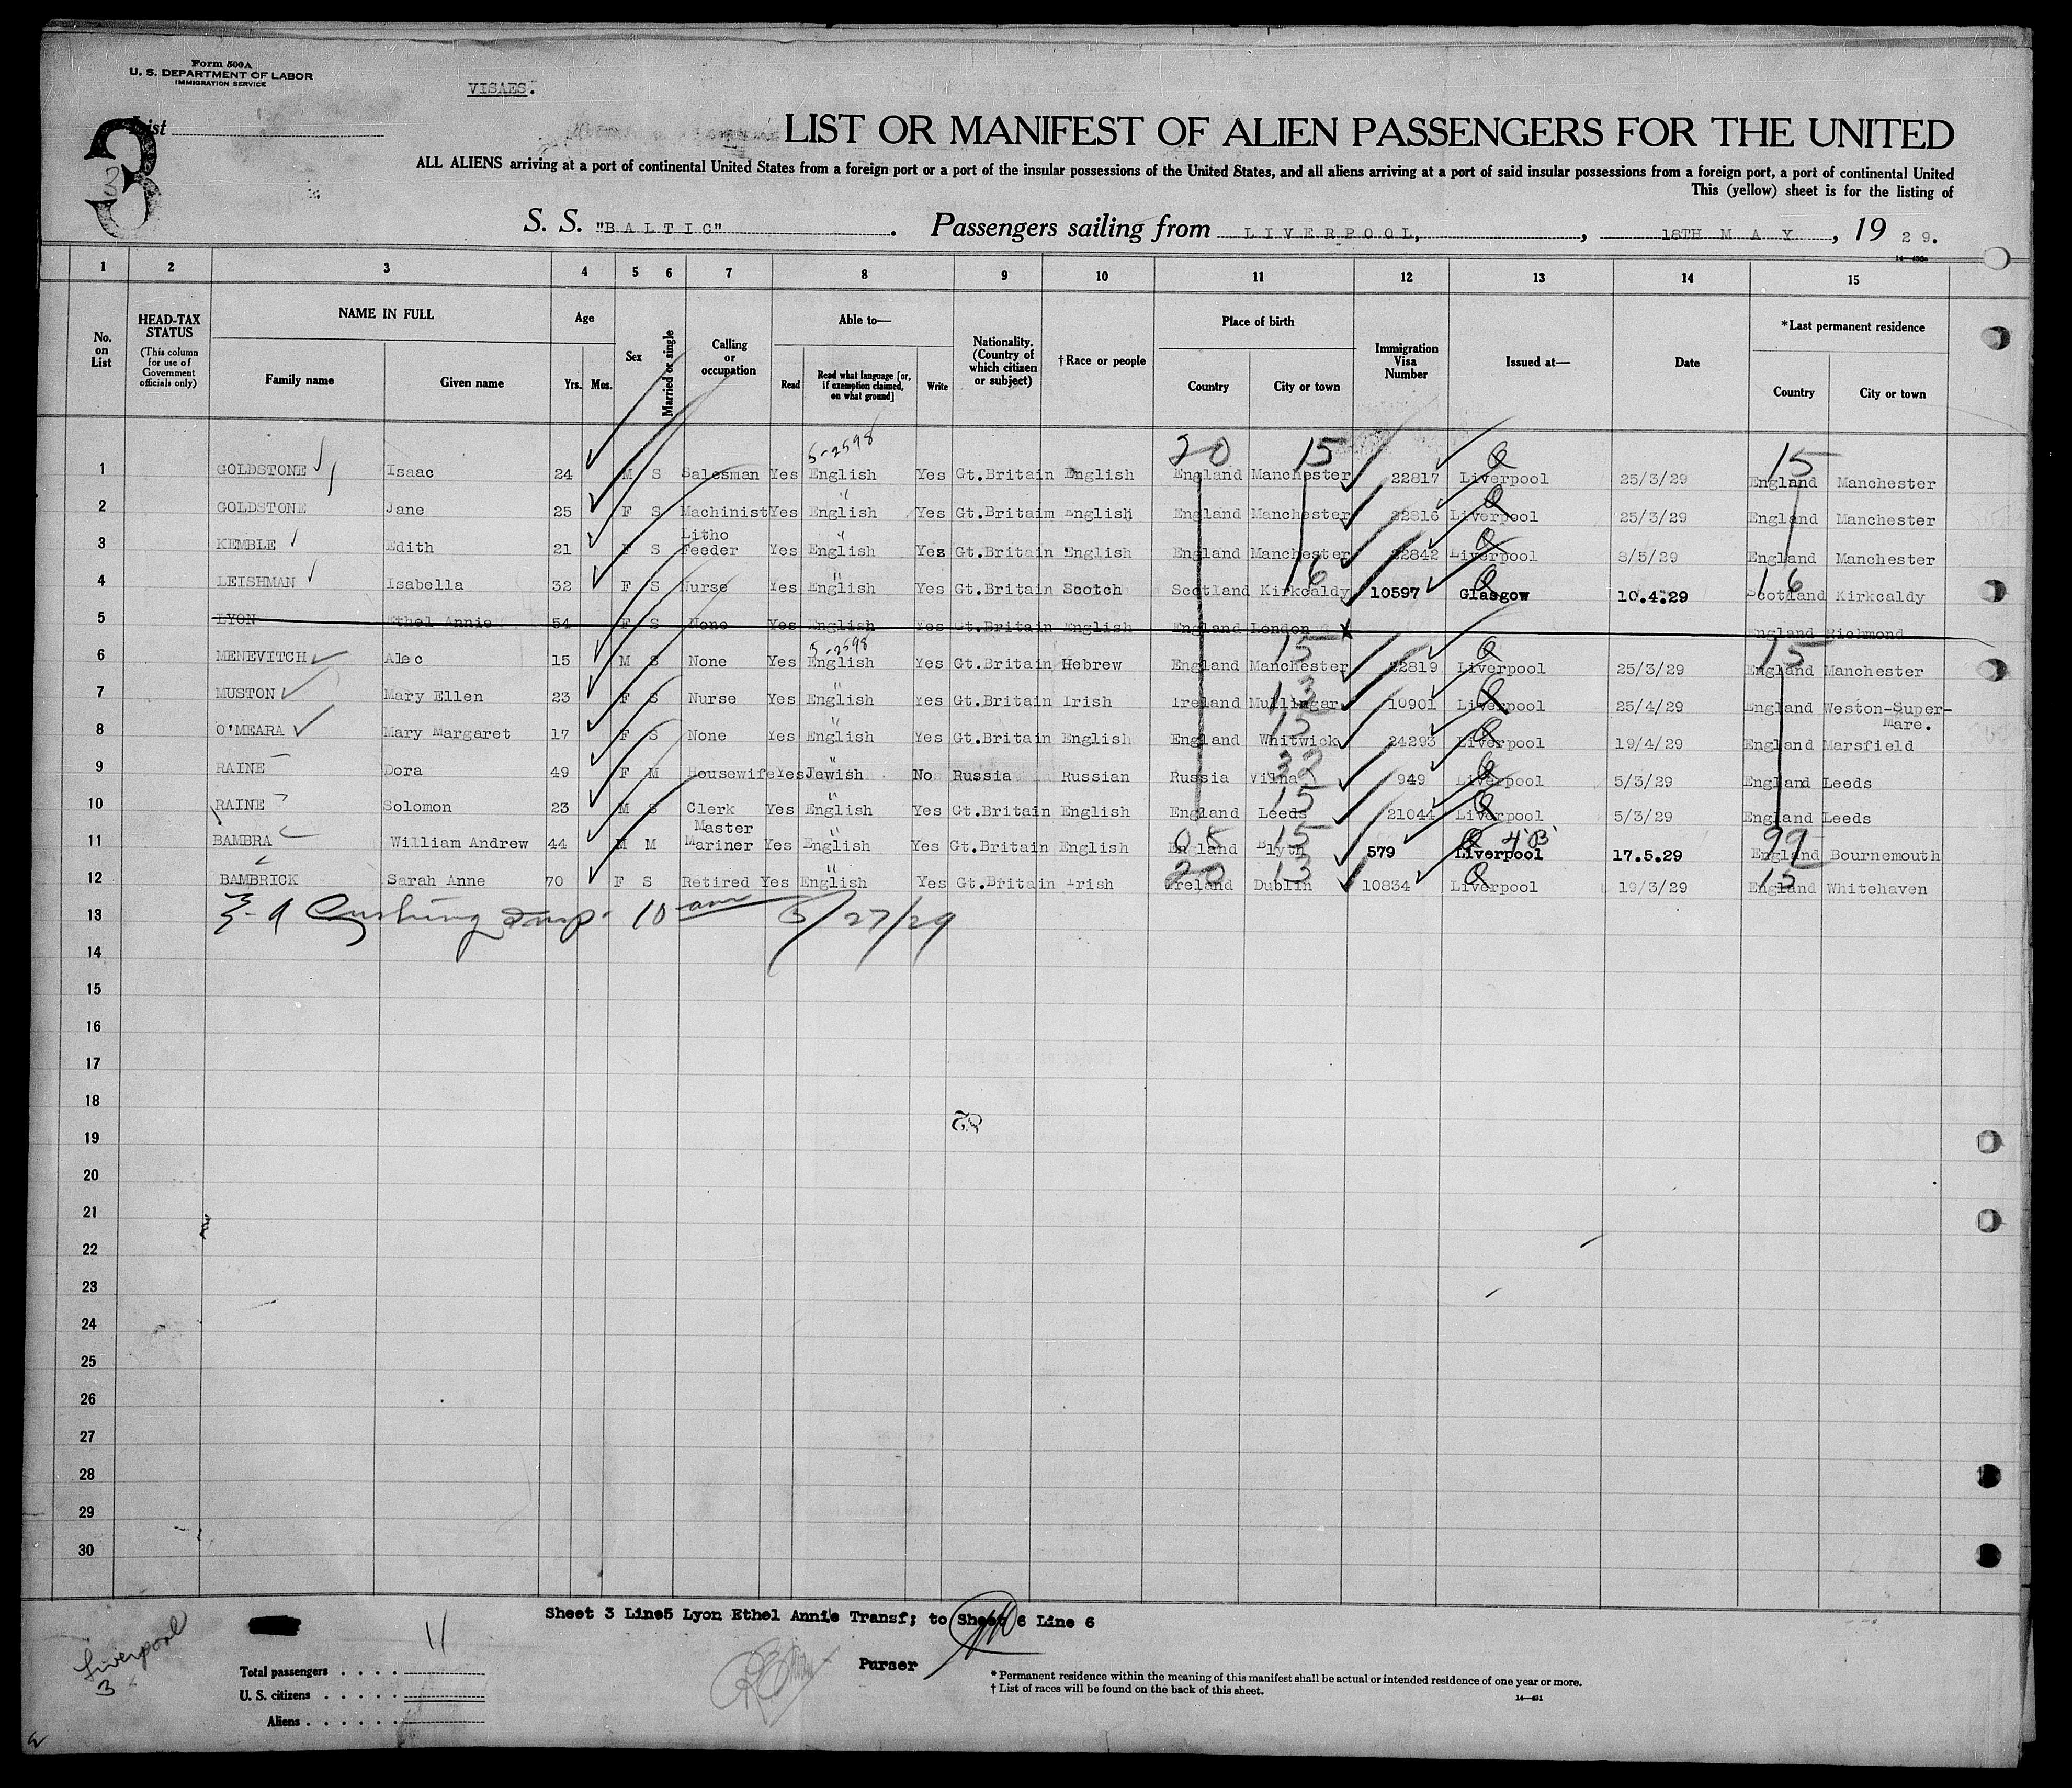 Form 500A
U. S. DEPARTMENT OF LABOR
IMMIGRATION SERVICE
VISAES.
List
3
3
LIST OR MANIFEST OF ALIEN PASSENGERS FOR THE UNITED
ALL ALIENS arriving at a port of continental United States from a foreign port or a port of the insular possessions of the United States, and all aliens arriving at a port of said insular possessions from a foreign port, a port of continental United
This (yellow) sheet is for the listing of
S. S. "BALTIC". Passengers sailing from LIVERPOOL, , 18TH MAY, 1929.
14—430a
1 2 3 4 5 6 7 8 9 10 11 12 13 14 15
No. on List
HEAD-TAX STATUS (This column for use of Government officials only)
NAME IN FULL
Family name Given name
Age
Yrs. Mos.
Sex
Married or single
Calling or occupation
Able to—
Read
Read what language [or, if exemption claimed, on what ground]
Write
Nationality. (Country of which citizen or subject)
†Race or people
Place of birth
Country City or town
Immigration Visa Number
Issued at—
Date
*Last permanent residence
Country City or town
5-2598 20 15 Q 15
1 GOLDSTONE Isaac 24 M S Salesman Yes English Yes Gt.Britain English England Manchester 22817 Liverpool 25/3/29 England Manchester
2 GOLDSTONE Jane 25 F S Machinist Yes English Yes Gt.Britaim English England Manchester 22816 Liverpool 25/3/29 England Manchester
3 KEMBLE Edith 21 F S Litho Feeder Yes English Yes Gt.Britain English England Manchester 22842 Liverpool 8/5/29 England Manchester
16 16
4 LEISHMAN Isabella 32 F S Nurse Yes English Yes Gt.Britain Scotch Scotland Kirkcaldy 10597 Glasgow 10.4.29 Scotland Kirkcaldy
5 LYON Ethel Annie 54 F S None Yes English Yes Gt.Britain English England London x England Richmond
5-2598 15 15
6 MENEVITCH Alec 15 M S None Yes English Yes Gt.Britain Hebrew England Manchester 22819 Liverpool 25/3/29 England Manchester
13
7 MUSTON Mary Ellen 23 F S Nurse Yes English Yes Gt.Britain Irish Ireland Mullingar 10901 Liverpool 25/4/29 England Weston-Super-Mare.
15
8 O'MEARA Mary Margaret 17 F S None Yes English Yes Gt.Britain English England Whitwick 24293 Liverpool 19/4/29 England Marsfield
32
9 RAINE Dora 49 F M Housewife Yes Jewish No Russia Russian Russia Vilna 949 Liverpool 5/3/29 England Leeds
15
10 RAINE Solomon 23 M S Clerk Yes English Yes Gt.Britain English England Leeds 21044 Liverpool 5/3/29 England Leeds
15 4'B' 99
11 BAMBRA William Andrew 44 M M Master Mariner Yes English Yes Gt.Britain English England Blyth 579 Liverpool 17.5.29 England Bournemouth
20 13 15
12 BAMBRICK Sarah Anne 70 F S Retired Yes English Yes Gt.Britain Irish Ireland Dublin 10834 Liverpool 19/3/29 England Whitehaven
13 Cushing Insp. 10 am 5/27/29
14
15
16
17
18
19
20
21
22
23
24
25
26
27
28
29
30
Sheet 3 Line5 Lyon Ethel Annie Transf; to Sheet 6 Line 6
Purser
Liverpool
3
11
Total passengers . . . .
U. S. citizens . . . . .
Aliens . . . . . .
* Permanent residence within the meaning of this manifest shall be actual or intended residence of one year or more.
† List of races will be found on the back of this sheet.
14—431